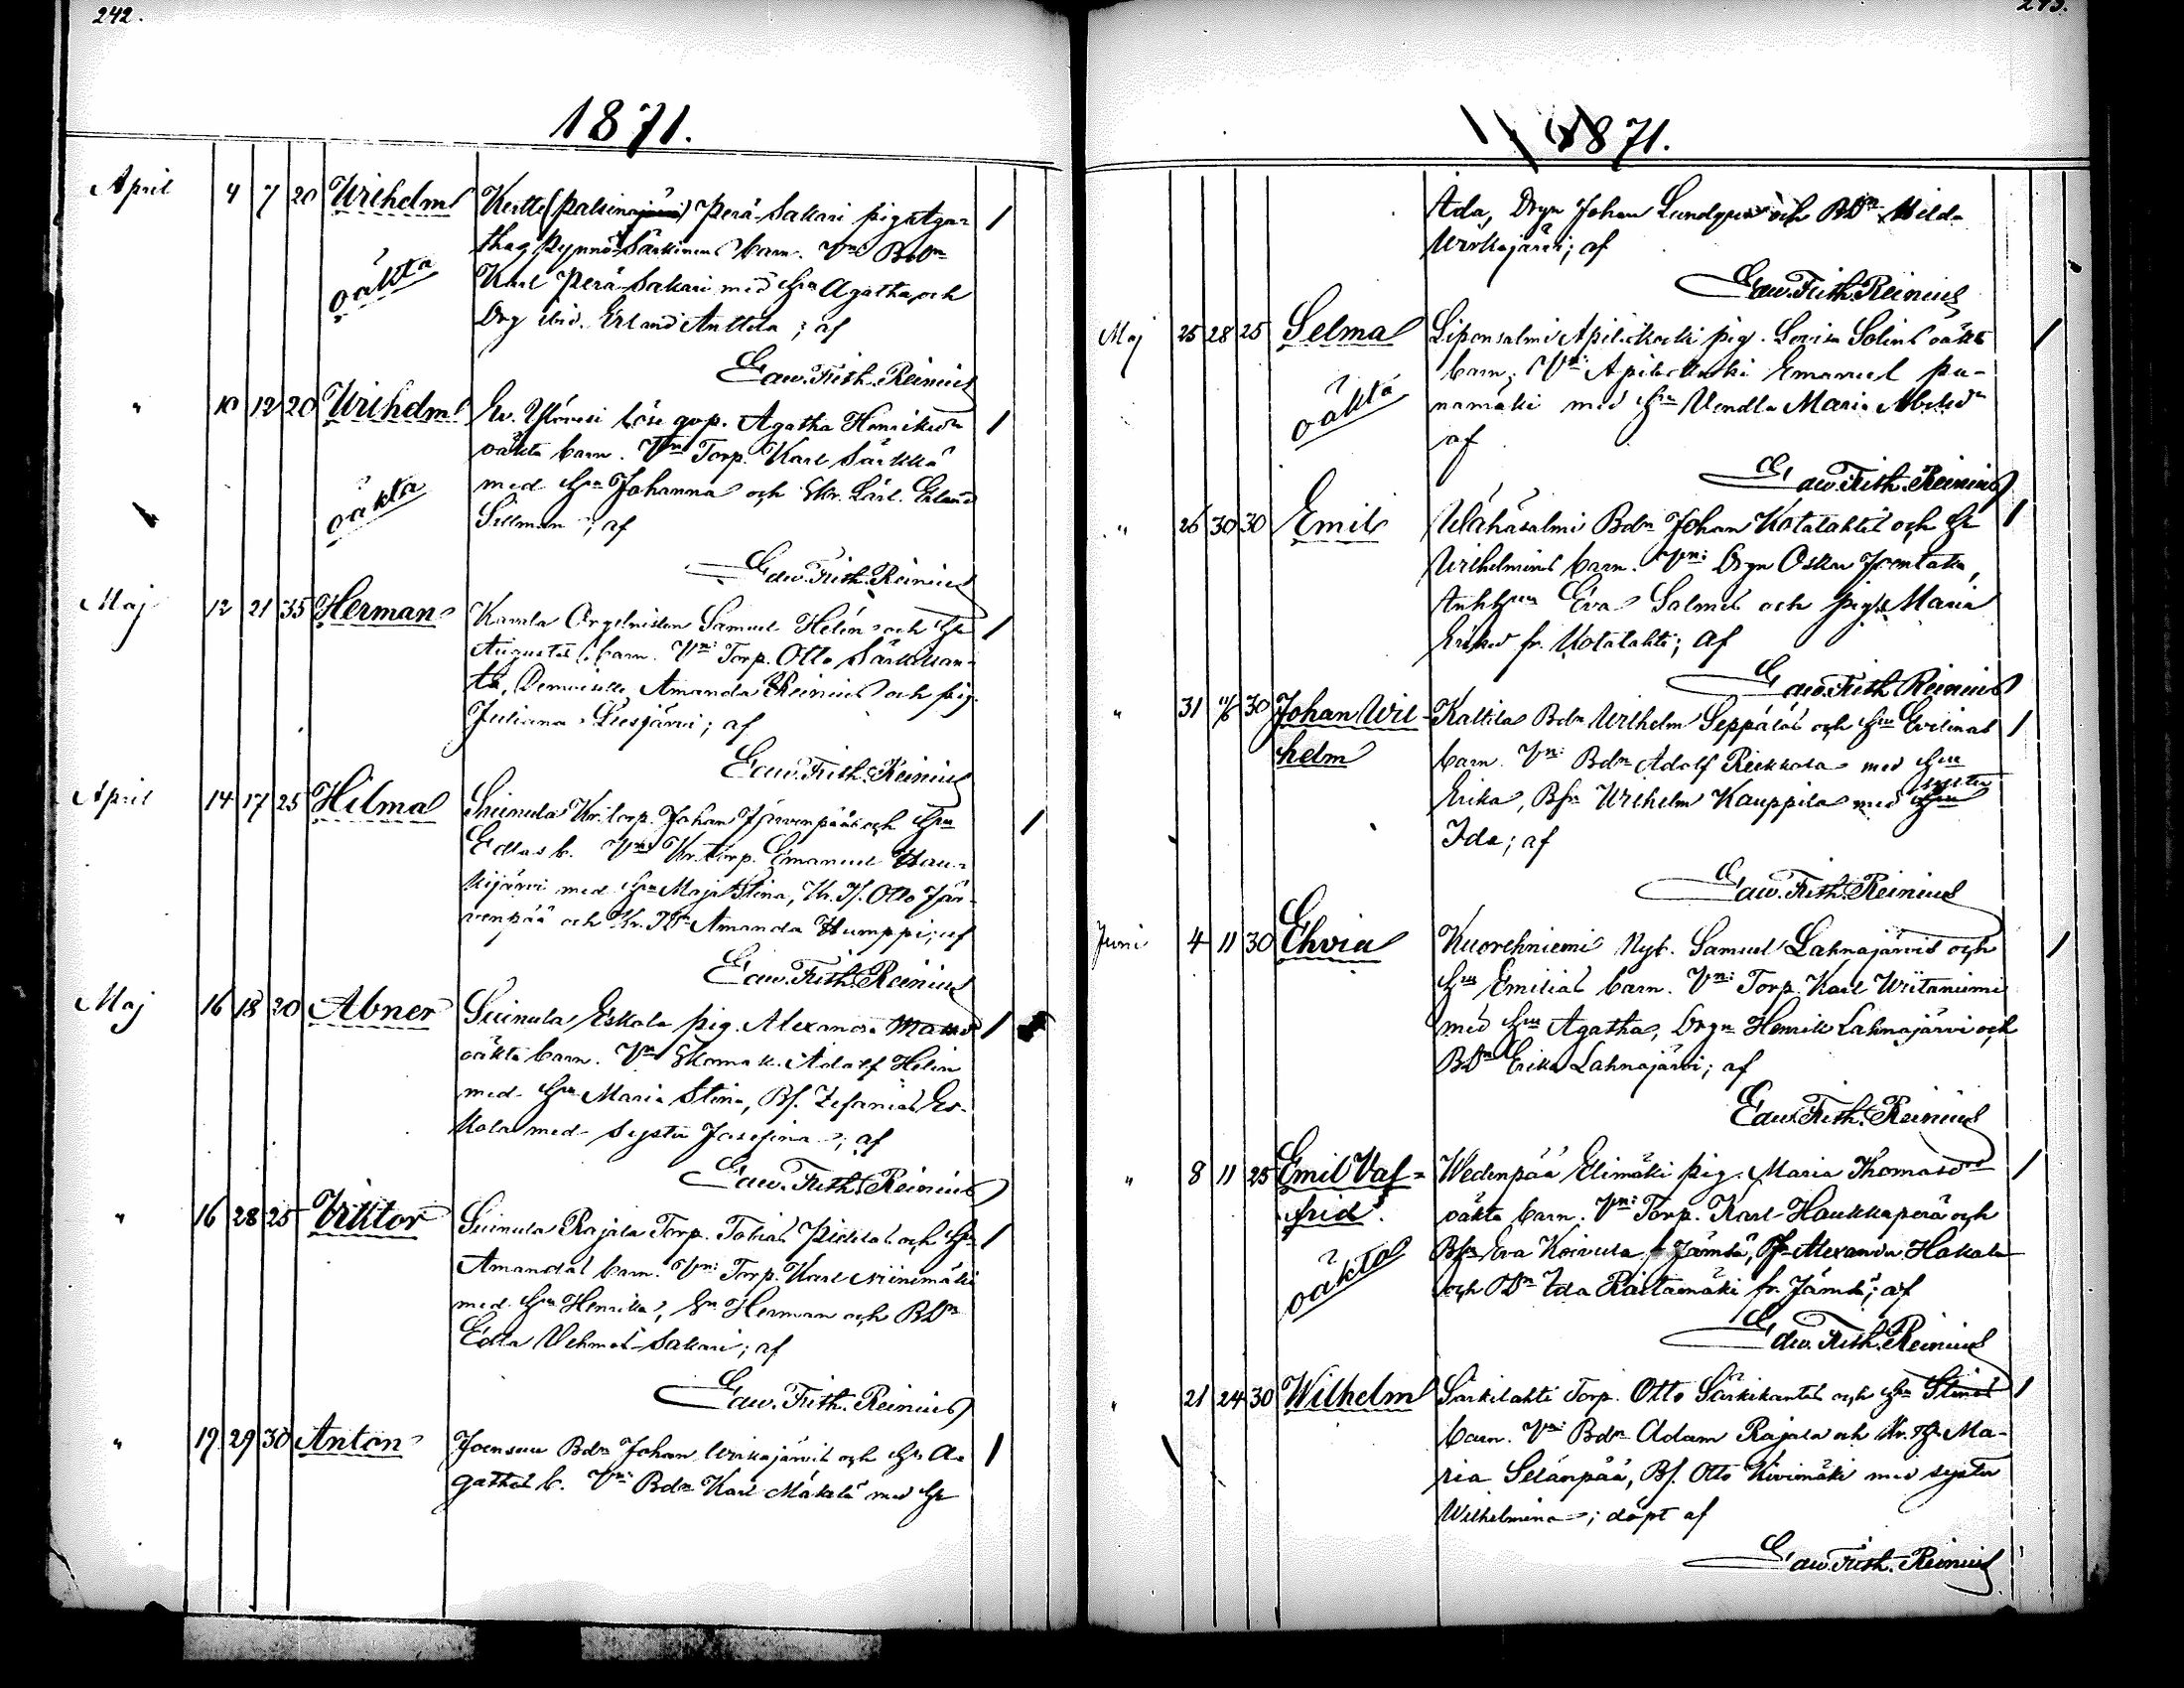 242.
1871.
April 4 7 20 Wilhelm Kertte (Palsina) Perä-Sakari pig Aga-
thas, Pynnö Särkinens barn. Vn: Bdn
oäkta Karl Perä Sakari med Hu Agatha och
Drg ibid. Erland Anttila; af
Edw. Frith. Reinius
" 10 12 20 Wilhelm Kv. Ylönesi löse qvp. Agatha Henriksdr
oäkta barn. Vn Torp. Karl Särkkä
oäkta med Hu Johanna och Skr. Lärl. Erland
Sillman; af
Edw. Frith. Reinius
Maj 12 21 35 Herman Karvla Orgelnisten Samuel Helén och Hu
Augustas barn. Vn: Torp. Otto Särkikan-
ta, Demoiselle Amanda Reinius och pig.
Juliana Liesjärvi; af
Edw. Frith. Reinius
April 14 17 25 Hilma Suinula Kr. torp. Johan Järvenpääs och Hu
Edlas b. Vn: Kr. torp. Emanuel Hau-
kijärvi med Hu Maja Stina, Kr. Tf. Otto Jär-
venpää och Kr. Dr Amanda Humppi; af
Edw. Frith. Reinius
Maj 16 18 20 Abner Suinula Eskola pig. Alexandra
oäkta barn. Vn Skomak. Adolf Helin
med Hu Maria Stina, Bf. Zefanias Es-
kola med syster Josefina; af
Edw. Frith. Reinius
" 16 28 25 Viktor Suinula Rajala Torp. Tobias och Hu
Amandas barn. Vn: Torp. Karl Niinimäki
med Hu Henrika, Herman och BDn
Edla Vehmas-Sakari; af
Edw. Frith. Reinius
" 19 29 30 Anton Joensuu Bdn Johan Wirkajärvis och Hu A-
gathas b. Vn: Bdn Karl Mäkelä med Hu
243.
1871.
Ada, Drgn Johan Lundqvist och BDn Hilda
Wirkajärvi; af
Edw. Frith. Reinius
Maj 25 28 25 Selma Liponsalmi Apilikoski pig. Lovisa Solins oäkta
barn; Vn: Apilikoski Emanuel Pu-
oäkta namäki med Hu Vendla Maria Abelsdr
af
Edw. Frith. Reinius
" 26 30 30 Emil Wähäsalmi Bdn Johan Kotalahtis och Hu
Wilhelminas barn. Vn: Drgn Oskar Jontaka,
Eva Salmes och pig. Maria
Eriksd fr. Kotalahti; af
Edw. Frith. Reinius
" 31 11/6 30 Johan Wil- Kaltila Bdn Wilhelm Seppäläs och Hu Evelinas
helm barn. Vn: Bdn Adolf Reikkola med Hu
syster
Erika, Bfn Wilhelm Kauppila med Hu
Ida; af
Edw. Frith. Reinius
Juni 4 11 30 Elvira Kuorehniemi Nyb. Samuel Lahnajärvis och
Hu Emilias barn. Vn: Torp. Karl Wiitaniemi
med Hu Agatha, Drgn Henrik Lahnajärvi och
BDn Erika Lahnajärvi; af
Edw. Frith. Reinius
" 8 11 25 Emil Val- Wedenpää Elimäki pig. Maria Thomasdr
frid oäkta barn. Vn: Torp. Karl Haukkaperä och
oäkta Bfn Eva Koivula fr Jämsä, Alexander Hakala
och Dn Ida Raitamäki fr. Jämsä; af
Edw. Frith. Reinius
" 21 24 30 Wilhelm Särkilahti Torp. Otto Särkikantas och Hu Stinas
barn. Vn: Bdn Adam Rajala och Kr. Ma-
ria Selänpää, Bf. Otto Kivimäki med syster
Wilhelmina; döpt af
Edw. Frith. Reinius